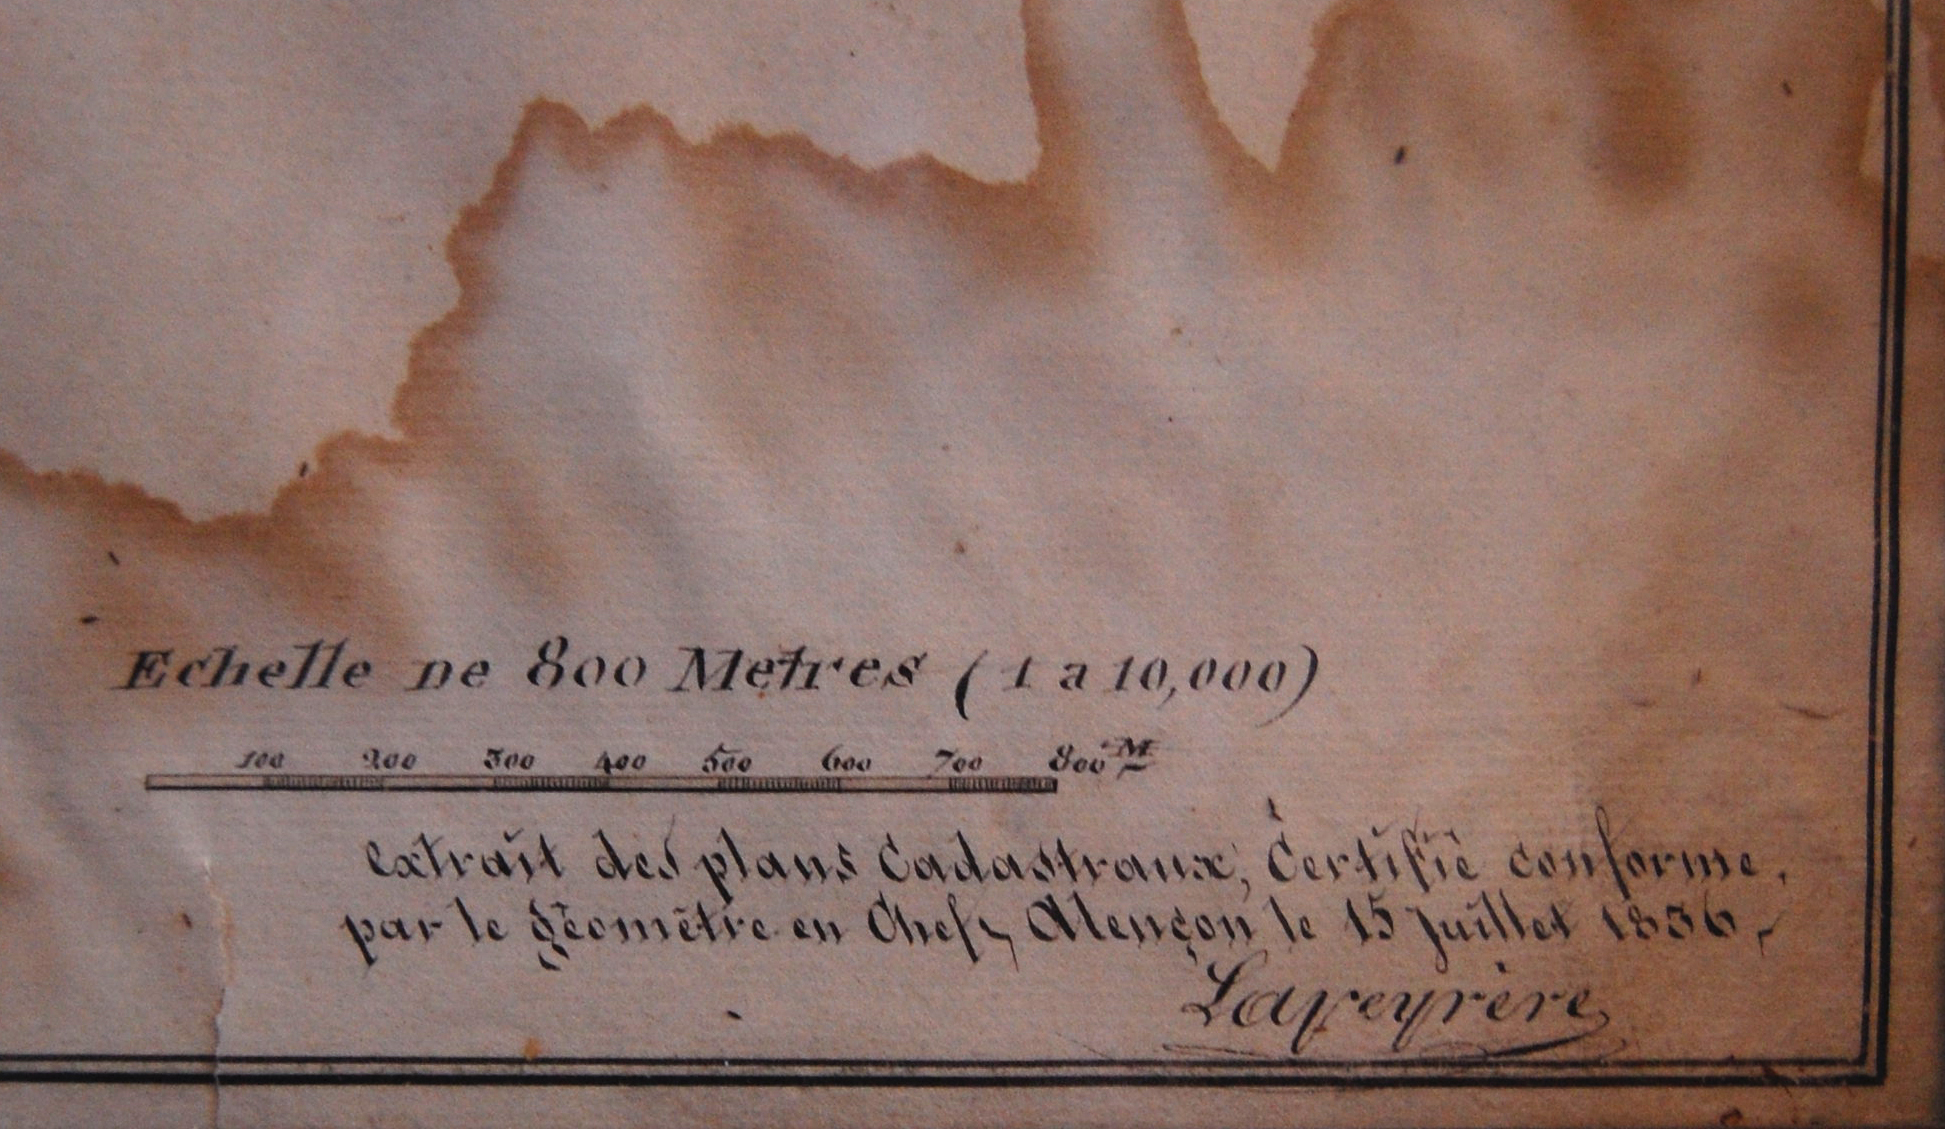 Echelle De 800 Metres (1 a 10,000)
100 200 300 400 500 600 700 800 M
extrait des plans Cadastraux, Certifié conforme,
par le géomètre en Chef, Alençon le 15 Juillet 1836,
Lapeyrère